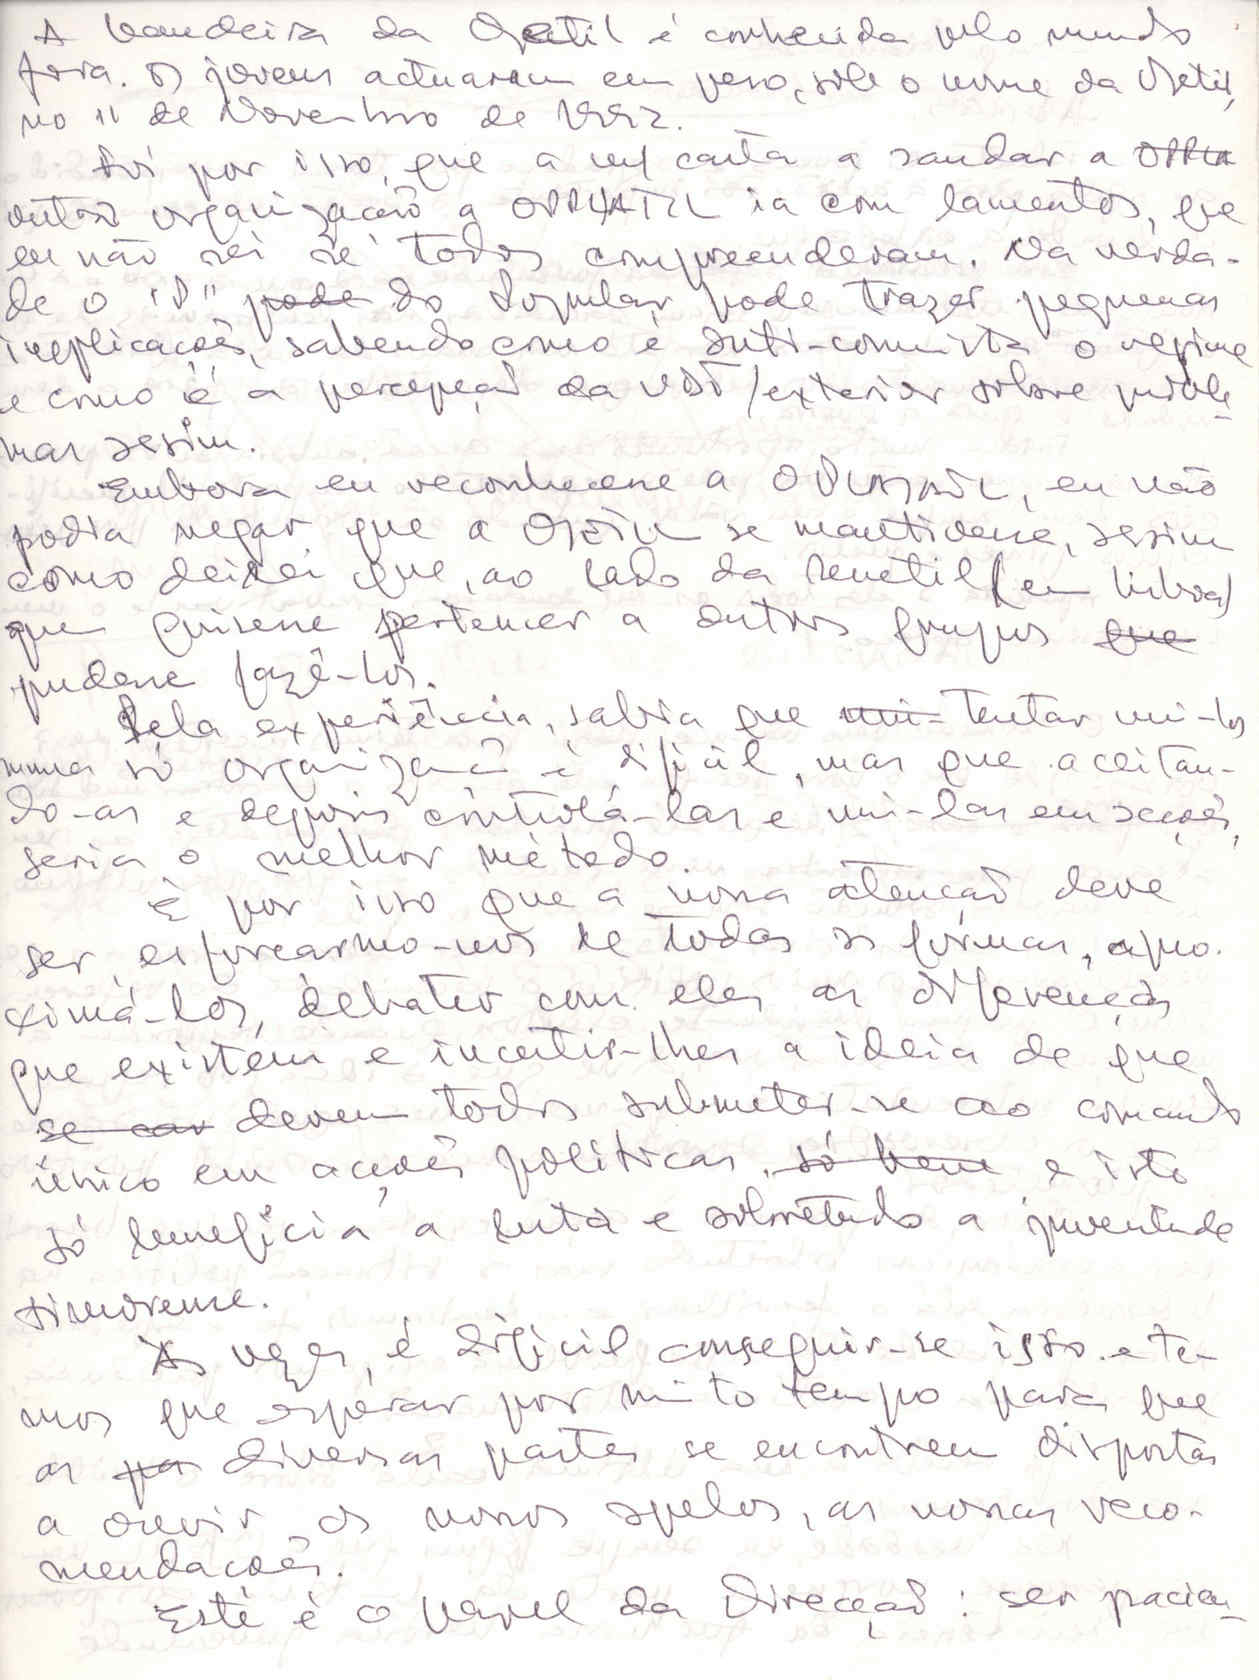 A bandeira da Ojetil é conhecida pelo mundo
fora. Os jovens actuaram em peso, sob o nome da Ojetil,
no 11 de Novembro de 1992.
Foi por isso, que a m/ carta a saudar a
outra organização a OPJLATIL ia com lamentos, que
eu não sei se todos compreenderam. Na verda-
de o "P" pode do Popular, pode trazer pequenas
implicações, sabendo como é anti-comunista o regime
e como é a percepção da UDT/exterior sobre proble-
mas assim.
Embora eu reconhecesse a OPJLATIL, eu não
podia negar que a Ojetil se mantivesse, assim
como deixei que, ao lado da Renetil (em Lisboa)
quem quisesse pertencer a outros grupos que
pudesse fazê-los.
Pela experiência, sabia que uni- tentar uni-los
numa só organização é difícil, mas que aceitan-
do-as e depois controlá-las e uni-las em acções,
seria o melhor método
É por isso que a nossa atenção deve
ser, esforçarmo-nos de todas as formas, apro-
ximá-los, debater com eles as diferenças
que existem e incutir-lhes a ideia de que
devem todos submeter-se ao comando
único em acções políticas, só bene e isto
só beneficia a luta e sobretudo a juventude
timorense.
Às vezes, é difícil conseguir-se isso e te-
mos que esperar por muito tempo para que
as pa diversas partes se encontrem dispostas
a ouvir os nossos apelos, as nossas reco-
mendações.
Este é o papel da Direcção: ser pacien-